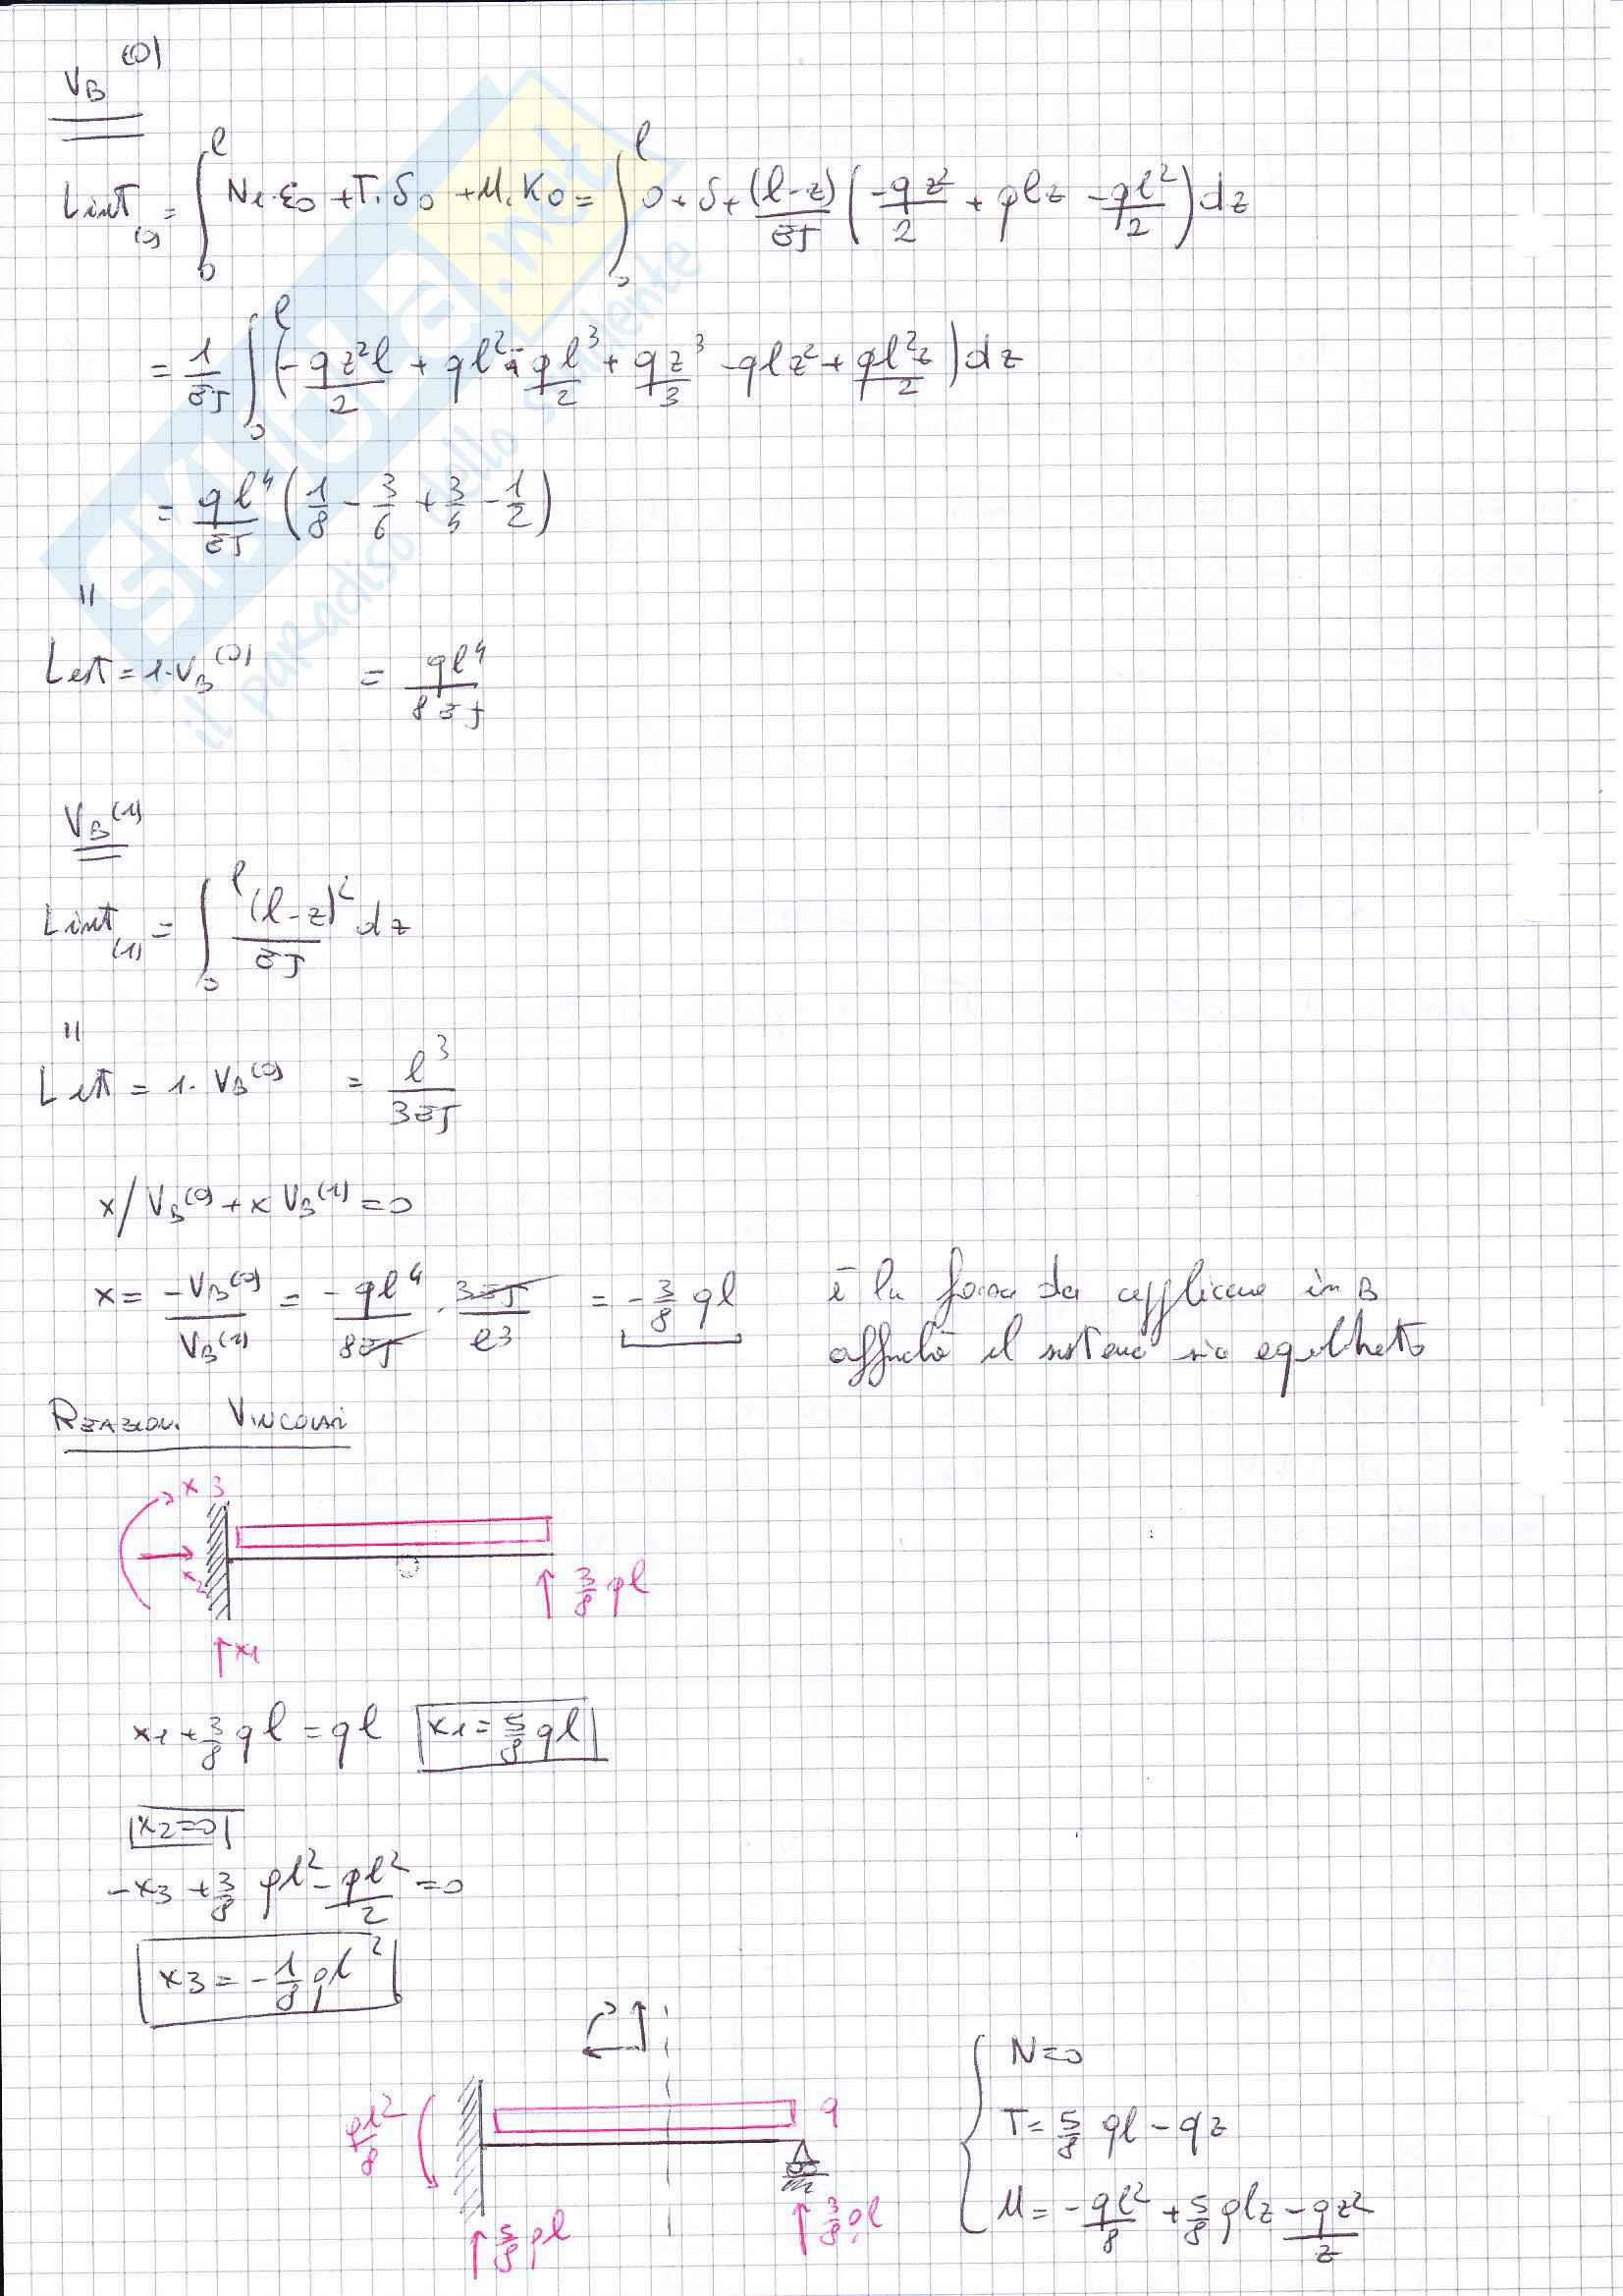 V_B^(0)
Lint_(0) = ∫_0^l N1·ε0 + T1·δ0 + M1·K0 = ∫_0^l 0 + δ + (l-z)/EJ (-qz²/2 + qlz - ql²/2) dz
= 1/EJ ∫_0^l (-qz²l/2 + ql²z - ql³/2 + qz³/3 - qlz² + ql²z/2) dz
= ql⁴/EJ (1/8 - 3/6 + 3/4 - 1/2)
"
Lest = 1·V_B^(0) = ql⁴/8EJ
V_B^(1)
Lint_(1) = ∫_0^l (l-z)²/EJ dz
"
Lest = 1·V_B^(0) = l³/3EJ
x/ V_B^(0) + x V_B^(1) = 0
x = -V_B^(0)/V_B^(1) = - ql⁴/8EJ · 3EJ/l³ = -3/8 ql è la forza da applicare in B
affinchè il sistema sia equilibrato
REAZIONI VINCOLARI
x3
x2
3/8 ql
x1
x1 + 3/8 ql = ql x1 = 5/8 ql
x2 = 0
-x3 + 3/8 ql² - ql²/2 = 0
x3 = -1/8 ql²
N = 0
ql²/8 q
T = 5/8 ql - qz
5/8 ql 3/8 ql
M = -ql²/8 + 5/8 qlz - qz²/2
SKUOLA.net
il paradiso dello studente